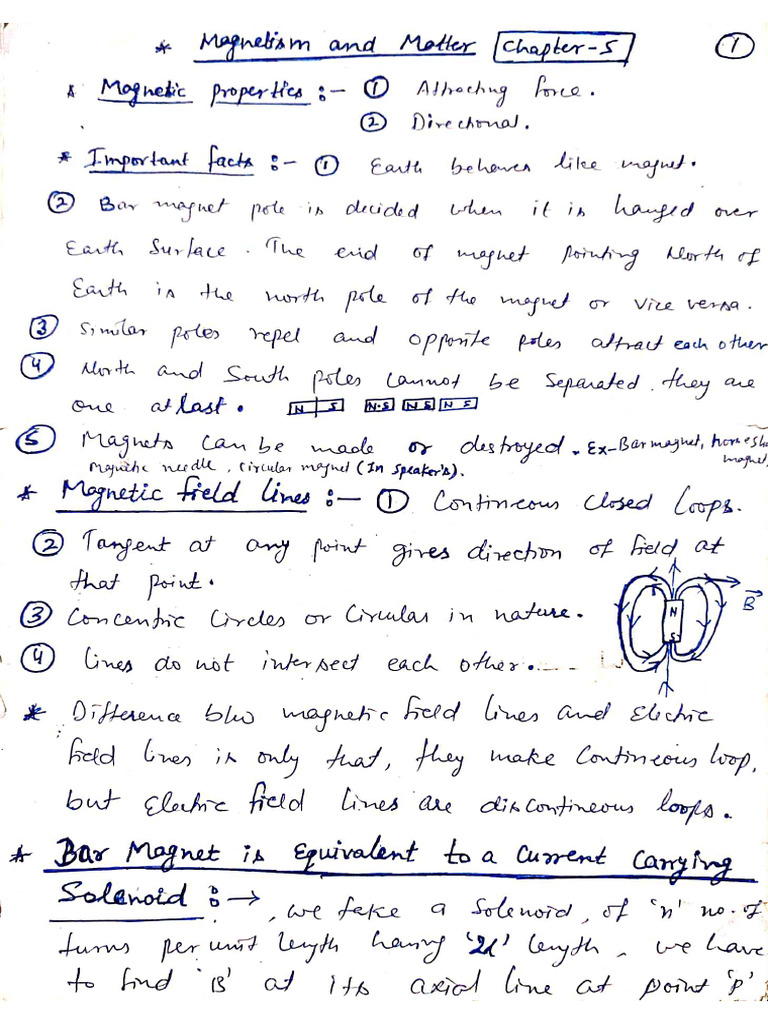 * Magnetism and Matter Chapter-5 1
* Magnetic properties :- 1 Attracting force.
2 Directional.
* Important facts :- 1 Earth behaves like magnet.
2 Bar magnet pole is decided when it is hanged over
Earth Surface. The end of magnet pointing North of
Earth is the north pole of the magnet or vice versa.
3 Similar poles repel and opposite poles attract each other
4 North and South poles cannot be separated, they are
one at last. N S N S N S N S
5 Magnets can be made or destroyed. Ex-Bar magnet, horse sho
magnet,
Magnetic needle, circular magnet (In speaker's).
* Magnetic field lines :- 1 Contineous closed loops.
2 Tangent at any point gives direction of field at
that point.
3 Concentric Circles or Circular in nature.
N
S
B
4 lines do not intersect each other.
* Difference b/w magnetic field lines and Electric
field lines is only that, they make Contineous loop,
but Electric field lines are discontineous loops.
* Bar Magnet is Equivalent to a Current Carrying
Solenoid :→ , we take a solenoid, of 'n' no. of
turns per unit length having '2l' length, we have
to find 'B' at its axial line at point 'P'